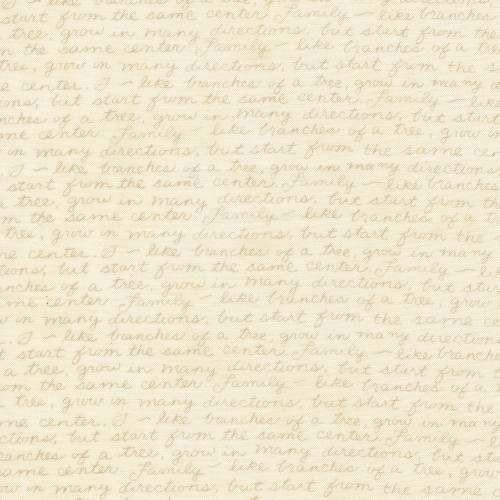 I ~ like branches of a tree, grow in many directions,
start from the same center. Family ~ like branches
a tree, grow in many directions, but start from the
m the same center Family ~ like branches of a tre
tree, grow in many directions, but start from the s
e center. I ~ like branches of a tree, grow in many
ons, but start from the same center. Family ~ like
nches of a tree, grow in many directions, but start
me center. Family ~ like branches of a tree, grow
in many directions, but start from the same cen
. I ~ like branches of a tree, grow in many directions
start from the same center. Family ~ like branches
a tree, grow in many directions, but start from th
m the same center Family ~ like branches of a t
tree, grow in many directions, but start from the
me center. I ~ like branches of a tree, grow in many
tions, but start from the same center Family ~ li
nches of a tree, grow in many directions, but start
me center Family ~ like branches of a tree, grow
w in many directions, but start from the same c
. I ~ like branches of a tree, grow in many direction
t start from the same center. Family ~ like branch
a tree, grow in many directions, but start from
om the same center Family ~ like branches of a
tree, grow in many directions, but start from the
me center. I ~ like branches of a tree, grow in many
ctions, but start from the same center. Family ~
ranches of a tree, grow in many directions, but sta
same center. Family ~ like branches of a tree, grow
ow in many directions, but start from the same